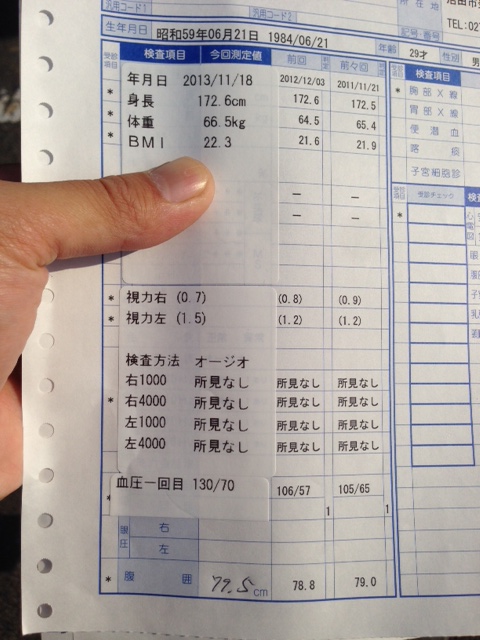 汎用コード1 汎用コード2
所在地
TEL:02
記号・番号
生年月日 昭和59年06月21日 1984/06/21 年齢 29才 性別 男
受診項目 検査項目 今回測定値 前回 前々回
年月日 2013/11/18 2012/12/03 2011/11/21
* 身長 172.6cm 172.6 172.5
* 体重 66.5kg 64.5 65.4
* BMI 22.3 21.6 21.9
— —
— —
* 視力右 (0.7) (0.8) (0.9)
* 視力左 (1.5) (1.2) (1.2)
検査方法 オージオ
右1000 所見なし 所見なし 所見なし
* 右4000 所見なし 所見なし 所見なし
左1000 所見なし 所見なし 所見なし
左4000 所見なし 所見なし 所見なし
* 血圧一回目 130/70 106/57 105/65
1 1
眼圧 右
左
* 腹囲 79.5cm 78.8 79.0
受診項目 検査項目
* 胸部X線
胃部X線
便潜血
喀痰
子宮細胞診
受診項目 受診チェック 検
*
心電図